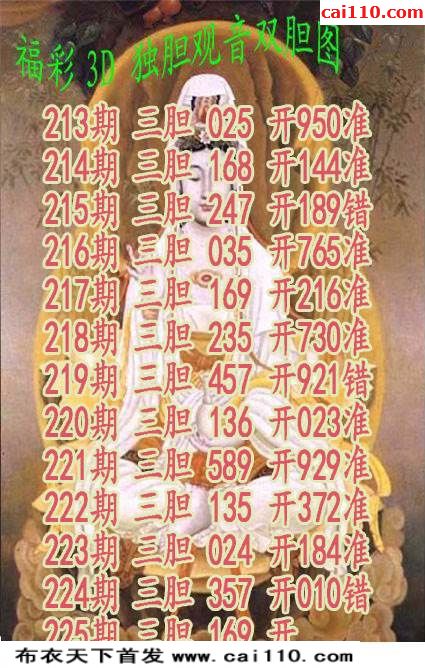 cai110.com
福彩3D 独胆观音双胆图
213期 三胆 025 开950准
214期 三胆 168 开144准
215期 三胆 247 开189错
216期 三胆 035 开765准
217期 三胆 169 开216准
218期 三胆 235 开730准
219期 三胆 457 开921错
220期 三胆 136 开023准
221期 三胆 589 开929准
222期 三胆 135 开372准
223期 三胆 024 开184准
224期 三胆 357 开010错
225期 三胆 169 开
布衣天下首发 www.cai110.com